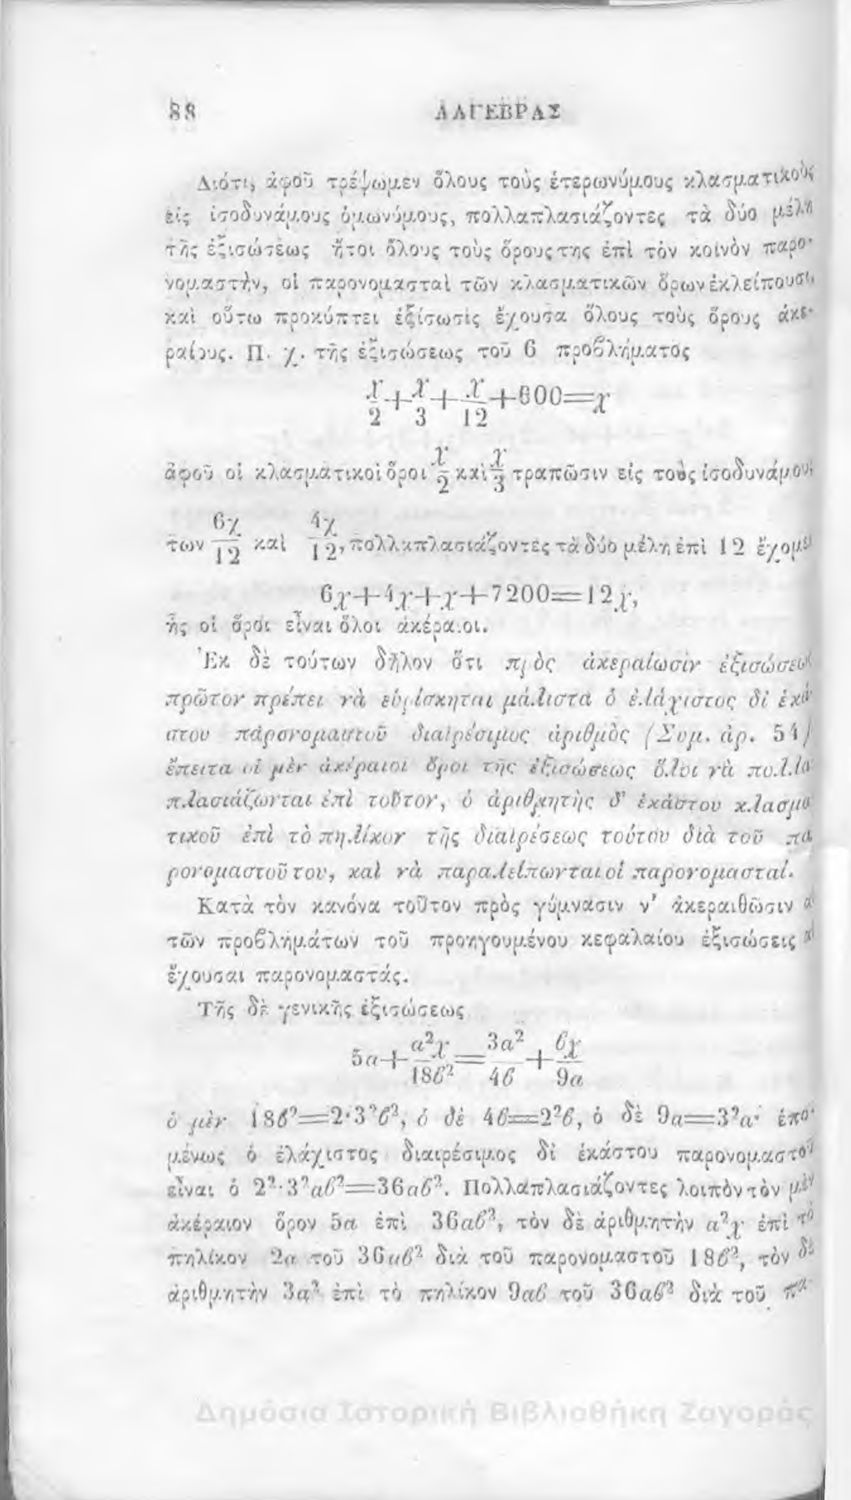 88 ΑΛΓΕΒΡΑΣ
Διότι, ἀφοῦ τρέψωμεν ὅλους τοὺς ἑτερωνύμους κλασματικοὺς
εἰς ἰσοδυνάμους ὁμωνύμους, πολλαπλασιάζοντες τὰ δύο μέλη
τῆς ἐξισώσεως ἤτοι ὅλους τοὺς ὅρους της ἐπὶ τὸν κοινὸν παρο-
νομαστὴν, οἱ παρονομασταὶ τῶν κλασματικῶν ὅρων ἐκλείπουσι
καὶ οὕτω προκύπτει ἐξίσωσις ἔχουσα ὅλους τοὺς ὅρους ἀκε-
ραίους. Π. χ. τῆς ἐξισώσεως τοῦ 6 προβλήματος
χ/2+χ/3+χ/12+600=χ
ἀφοῦ οἱ κλασματικοὶ ὅροι χ/2 καὶ χ/3 τραπῶσιν εἰς τοὺς ἰσοδυνάμους
των 6χ/12 καὶ 4χ/12, πολλαπλασιάζοντες τὰ δύο μέλη ἐπὶ 12 ἔχομεν
6χ+4χ+χ+7200=12χ,
ἧς οἱ ὅροι εἶναι ὅλοι ἀκέραιοι.
Ἐκ δὲ τούτων δῆλον ὅτι πρὸς ἀκεραίωσιν ἐξισώσεως
πρῶτον πρέπει νὰ εὑρίσκηται μάλιστα ὁ ἐλάχιστος δι' ἑκά-
στου παρονομαστοῦ διαιρέσιμος ἀριθμὸς (Συμ. ἀρ. 54)
ἔπειτα οἱ μὲν ἀκέραιοι ὅροι τῆς ἐξισώσεως ὅλοι νὰ πολλα-
πλασιάζωνται ἐπὶ τοῦτον, ὁ ἀριθμητὴς δ' ἑκάστου κλασμα-
τικοῦ ἐπὶ τὸ πηλίκον τῆς διαιρέσεως τούτου διὰ τοῦ πα-
ρονομαστοῦ του, καὶ νὰ παραλείπωνται οἱ παρονομασταί.
Κατὰ τὸν κανόνα τοῦτον πρὸς γύμνασιν ν' ἀκεραιθῶσιν αἱ
τῶν προβλημάτων τοῦ προηγουμένου κεφαλαίου ἐξισώσεις αἱ
ἔχουσαι παρονομαστάς.
Τῆς δὲ γενικῆς ἐξισώσεως
5α+α²χ/18β²=3α²/4β+6χ/9α
ὁ μὲν 18β²=2·3²β², ὁ δὲ 4β=2²β, ὁ δὲ 9α=3²α· ἑπο-
μένως ὁ ἐλάχιστος διαιρέσιμος δι' ἑκάστου παρονομαστοῦ
εἶναι ὁ 2²·3²αβ²=36αβ². Πολλαπλασιάζοντες λοιπὸν τὸν μὲν
ἀκέραιον ὅρον 5α ἐπὶ 36αβ², τὸν δὲ ἀριθμητὴν α²χ ἐπὶ τὸ
πηλίκον 2α τοῦ 36αβ² διὰ τοῦ παρονομαστοῦ 18β², τὸν δὲ
ἀριθμητὴν 3α² ἐπὶ τὸ πηλίκον 9αβ τοῦ 36αβ² διὰ τοῦ πα-
Δημόσια Ιστορική Βιβλιοθήκη Ζαγοράς